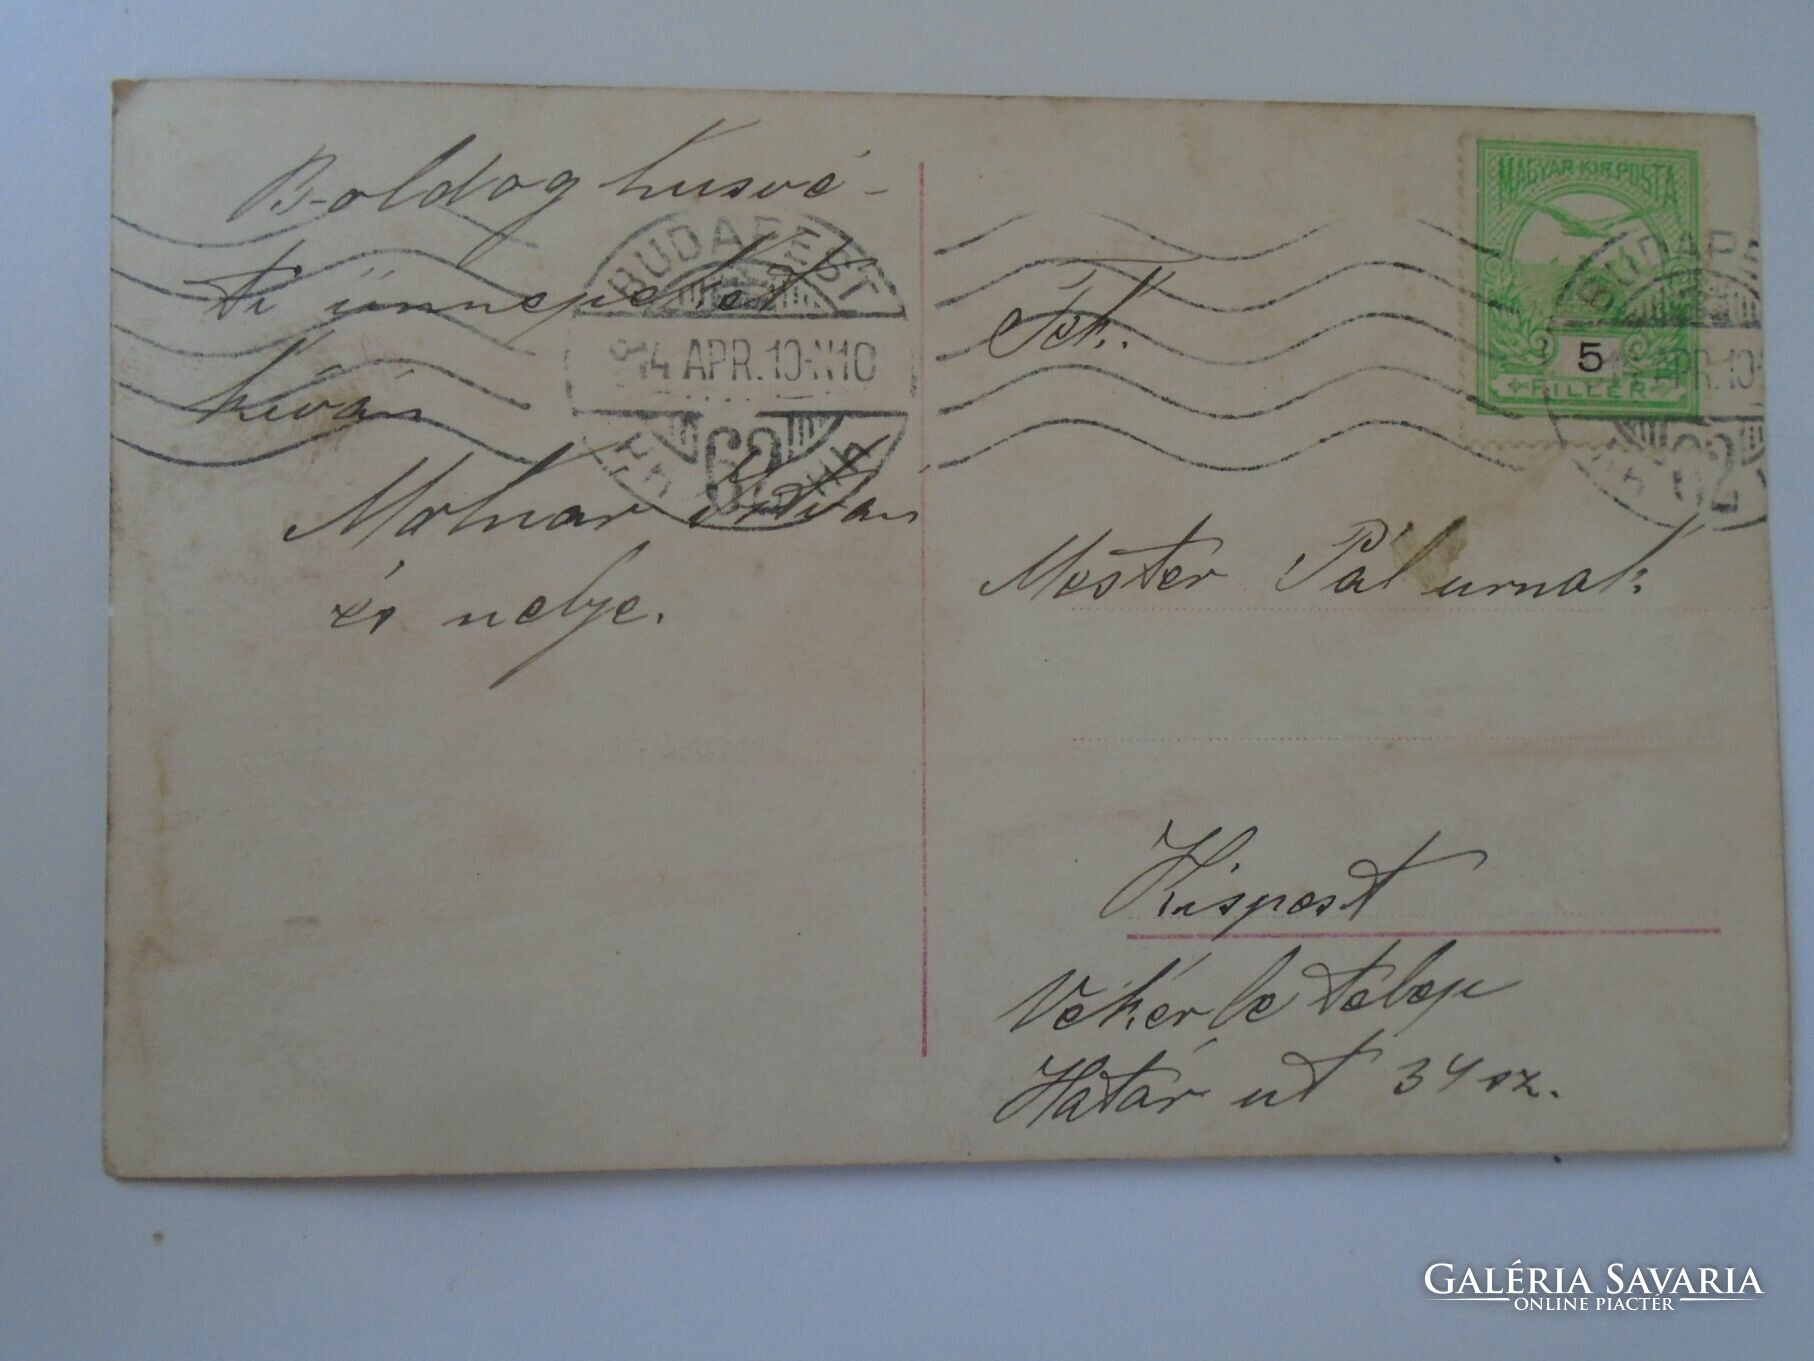 Boldog husvé-
ti ünnepeket
kiván
Molnar István
és neje.
BUDAPEST
914 APR.10-N10
62
MAGYAR KIR. POSTA
5
FILLÉR
BUDAPE
14 APR.10
62
Tek.
Mester Pál urnak
Kispest
Vekérle telep
Határ ut 34 sz.
GALÉRIA SAVARIA
ONLINE PIACTÉR